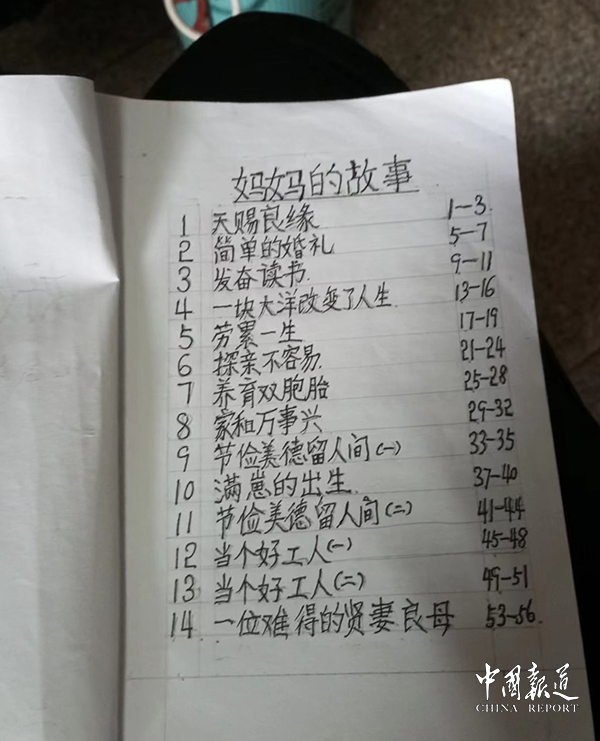 妈妈的故事
1 天赐良缘 1-3
2 简单的婚礼 5-7
3 发奋读书. 9-11
4 一块大洋改变了人生. 13-16
5 劳累一生 17-19
6 探亲不容易. 21-24
7 养育双胞胎 25-28
8 家和万事兴 29-32
9 节俭美德留人间(一) 33-35
10 满崽的出生. 37-40
11 节俭美德留人间(二) 41-44
12 当个好工人(一) 45-48
13 当个好工人(二) 49-51
14 一位难得的贤妻良母 53-56.
中国报道
CHINA REPORT